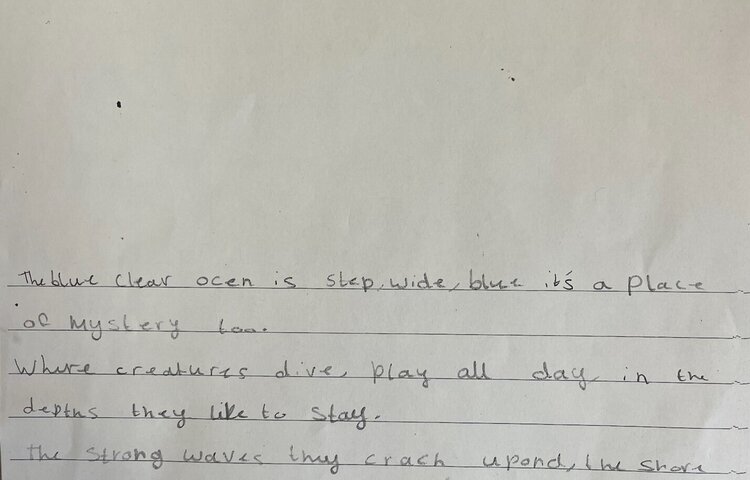 The blue clear ocen is step, wide, blue it's a place
of mystery too.
Where creatures dive, play all day, in the
depths they like to stay.
The strong waves they crash upond, the shore